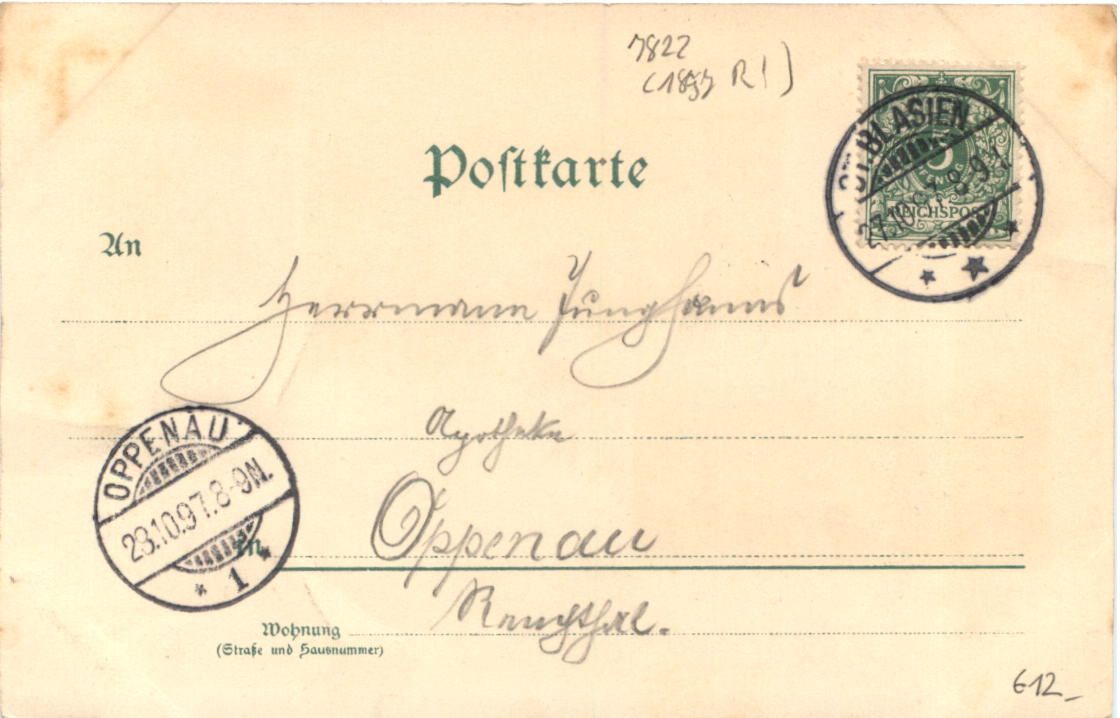 7822
(1897 R!)
Postkarte
ST. BLASIEN
27.10.97. 8-9 V.
5
PFENNIG
REICHSPOST
An
Herrmann Junghanns
Apotheke
OPPENAU
28.10.97. 8-9N.
1
in Oppenau
Renchthal.
Wohnung
(Straße und Hausnummer)
612_